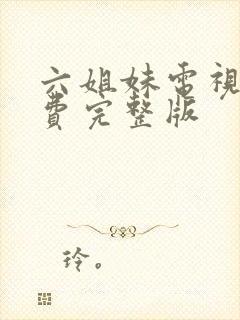 六姐妹電視
費完整版
玲。